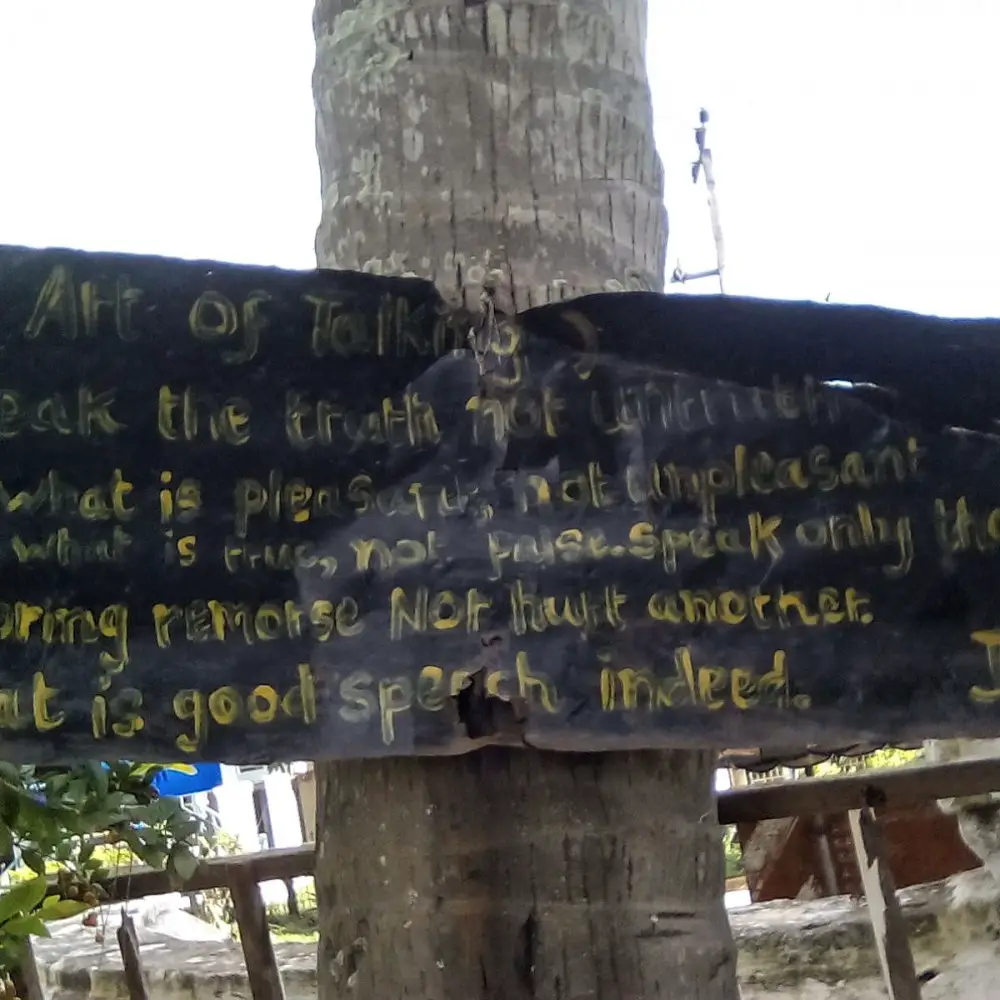 Art of Talking
eak the truth not untruth
what is pleasant, not unpleasant
what is true, not false. Speak only tho
bring remorse Not hurt another.
at is good speech indeed.